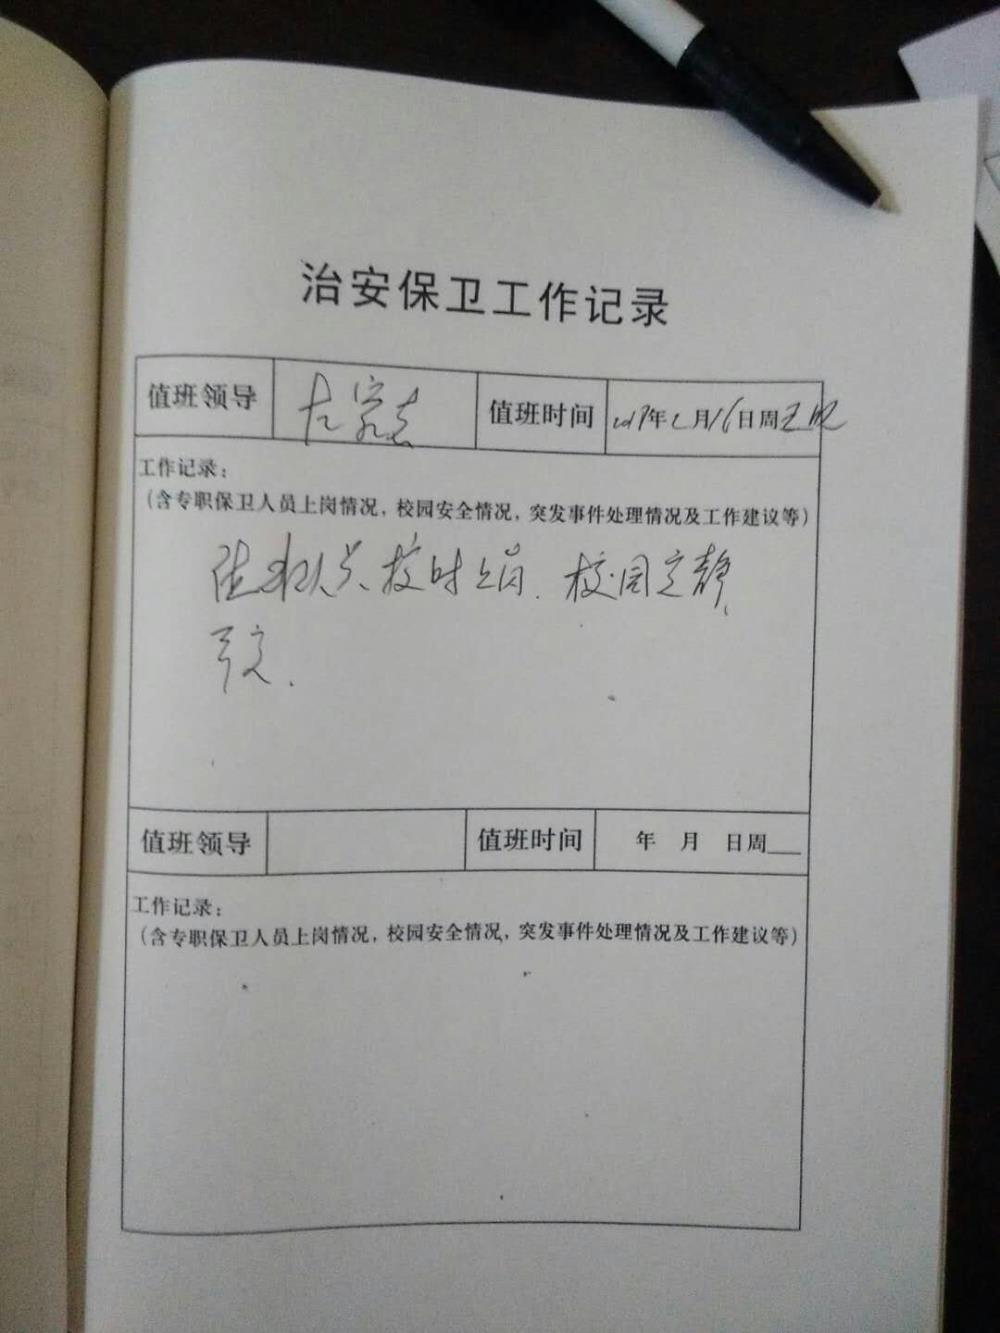 治安保卫工作记录
值班领导 左家志 值班时间 年2月16日周
工作记录：
（含专职保卫人员上岗情况，校园安全情况，突发事件处理情况及工作建议等）
按时上岗. 校园安静,
值班领导 值班时间 年 月 日周
工作记录：
（含专职保卫人员上岗情况，校园安全情况，突发事件处理情况及工作建议等）